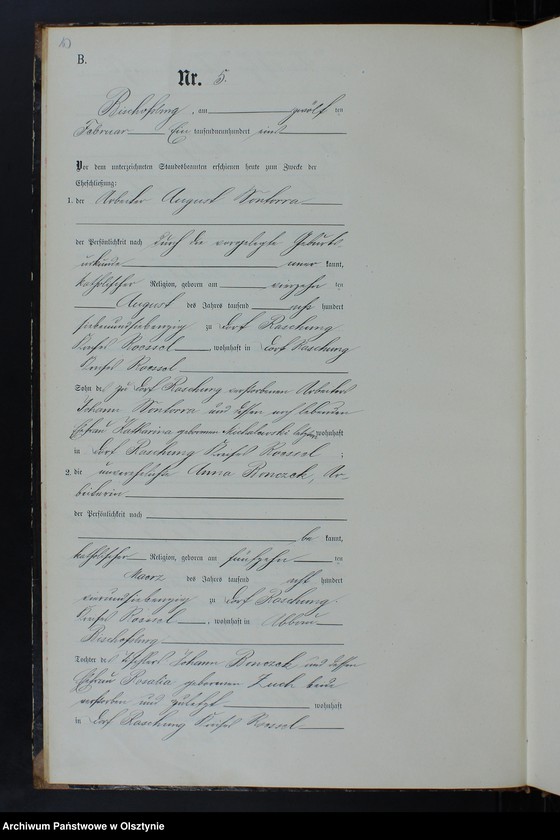 B.
Nr. 5.
Bischofsburg, am zwölf ten
Februar Ein tausendneunhundert eins
Vor dem unterzeichneten Standesbeamten erschienen heute zum Zwecke der
Eheschließung:
1. der Arbeiter August Wontorra
der Persönlichkeit nach durch die vorgelegte Geburts
urkunde aner kannt,
katholischer Religion, geboren am vierzehn ten
August des Jahres tausend acht hundert
siebenundsiebenzig zu Dorf Raschung
Kreises Roessel, wohnhaft in Dorf Raschung
Kreises Roessel
Sohn des zu Dorf Raschung verstorbenen Arbeiters
Johann Wontorra und dessen noch lebenden
Ehefrau Katharina geborenen letztere wohnhaft
in Dorf Raschung Kreises Roessel;
2. die unverehelichte Anna Bonczek, Ar-
beiterin
der Persönlichkeit nach
be kannt,
katholischer Religion, geboren am fünfzehn ten
Maerz des Jahres tausend acht hundert
vierundsiebenzig zu Dorf Raschung
Kreises Roessel, wohnhaft in Abbau
Bischofsburg
Tochter des Johann Bonczek und dessen
Ehefrau Rosalia geborenen Zuch beide
verstorben und zuletzt wohnhaft
in Dorf Raschung Kreises Roessel
Archiwum Państwowe w Olsztynie